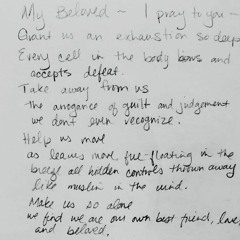 My Beloved ~ I pray to you –
Grant us an exhaustion so deep
Every cell in the body bows and
accepts defeat.
Take away from us
the arrogance of guilt and judgement
we don't even recognize.
Help us move
as leaves move, free-floating in the
breeze all hidden controls thrown away
like muslin in the wind.
Make us so alone
we find we are our own best friend, lover
and beloved.